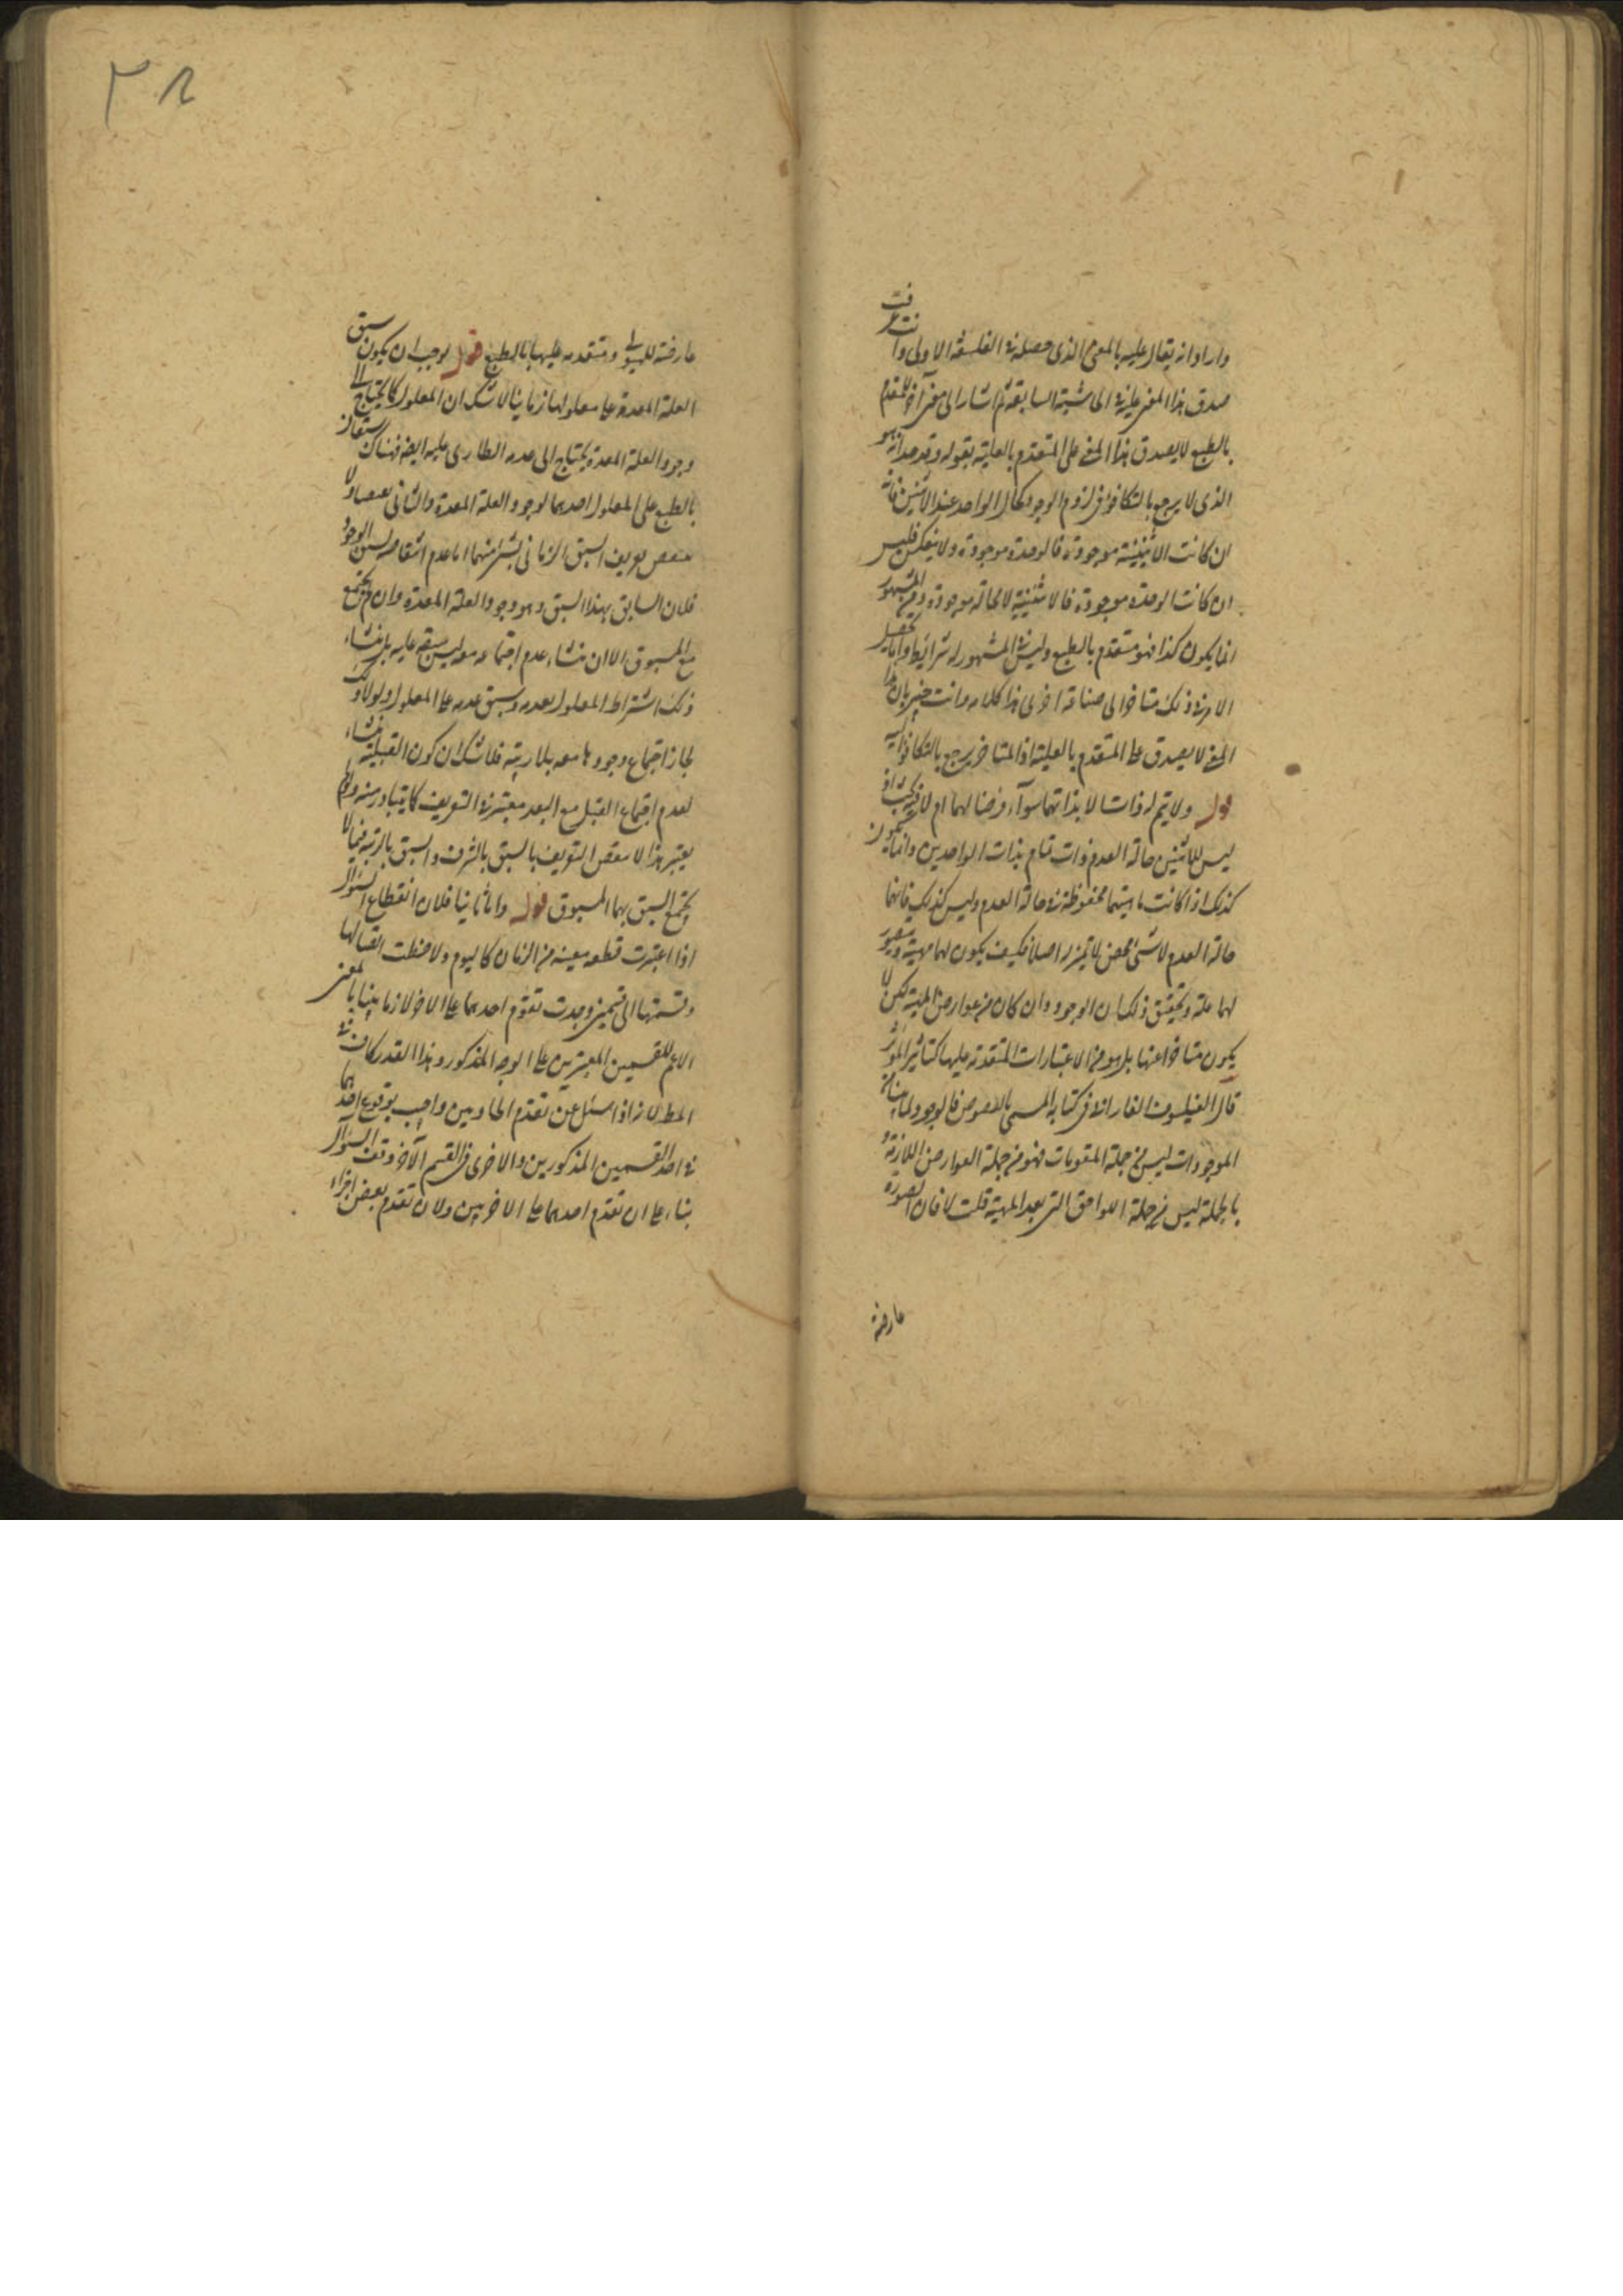 واراد انه يقال عليه بالمعنى الذى حصله فى الفلسفة الاولى وانت عرفت
صدق هذا المعنى عليه فى الحاشية السابقة ثم اشار الى معنى آخر للمتقدم
بالطبع لا يصدق هذا المعنى على المتقدم بالعلية بقوله وقد حد انه هو
الذى لا يرجع بالتكافؤ فى لزوم الوجود كحال الواحد عند الاثنين فانه
ان كانت الاثنينية موجودة فالوحدة موجودة ولا ينعكس فليس
ان كانت الوحدة موجودة فالاثنينية لا محالة موجودة وفى المشهور
انما يكون كذا فهو متقدم بالطبع وليس فى المشهور له شرائط وانما يحصل
الامر فى ذلك متاخرا الى صناعة اخرى هذا كلامه وانت خبير بان هذا
المعنى لا يصدق على المتقدم بالعلية اذ المتاخر يرجع بالتكافؤ اليه
قوله ولا يتم له ذات الا بذاتهما سواء فرضا لهما ام لا فيه بحث اذ
ليس للاثنين حالة العدم ذات تتام بذات الواحدين وانما يكون
كذلك اذا كانت ماهيتهما محفوظة فى حالة العدم وليس كذلك فانهما
حالة العدم لا شىء محض لا تميز له اصلا فكيف يكون لهما مهية ويتصور
لهما علة وتحقيق ذلك ان الوجود وان كان من عوارض المهية لكن لا
يكون متاخرا عنها بل هو من الاعتبارات المتقدمة عليها كتاثير المؤثر
قال الفيلسوف الفارابى فى كتابه المسمى بالفصوص فالوجود لما يناله
الموجودات ليس من جملة المقومات فهو من جملة العوارض اللازمة و
بالجملة ليس من جملة اللواحق التى بعد المهية قلت لا فان الصورة
عارضة
عارضة للهيولى ومتقدمة عليها بالطبع قوله يوجب ان يكون سبق
العلة المعدة على معلولها زمانيا لا شك ان المعلول كما يحتاج الى
وجود العلة المعدة يحتاج الى عدمه الطارى عليه ايضا فهناك سبقان
بالطبع على المعلول احدهما لوجود العلة المعدة والثانى لعدمها ولا
ينتقض تعريف السبق الزمانى بشىء منهما اما عدم انتقاضه بسبق الوجود
فلان السابق بهذا السبق وهو وجود العلة المعدة وان لم يجتمع
مع المسبوق الا ان منشاء عدم اجتماعه معه ليس سبقه عليه بل منشاء
ذلك اشتراط المعلول بعدمه وسبق عدمه على المعلول ولولا ذلك
لجاز اجتماع وجودها معه بلا ريبة فلا شك ان كون القبلية منشاء
لعدم اجتماع القبل مع البعد معتبر فى التعريف كما يتبادر منه ولو لم
يعتبر هذا لانتقض التعريف بالسبق بالشرف والسبق بالرتبة فيما لا
يجتمع السبق بهما المسبوق قوله واما ثانيا فلان انقطاع السؤال
اذا اعتبرت قطعة معينة من الزمان كاليوم ولاحظت اتصالها
وقسمتها الى قسمين وجدت تقدم احدهما على الاخر لا زمانيا بالمعنى
الاعم للقسمين المعتبرين على الوجه المذكور وهذا القدر كاف فى
المط لانه اذا سئل عن تقدم الحادثين واجيب بوقوع احدهما
فى احد القسمين المذكورين والاخرى فى القسم الآخر وقف السؤال
بناء على ان تقدم احدهما على الاخر بين ولان تقدم بعض اجزاء